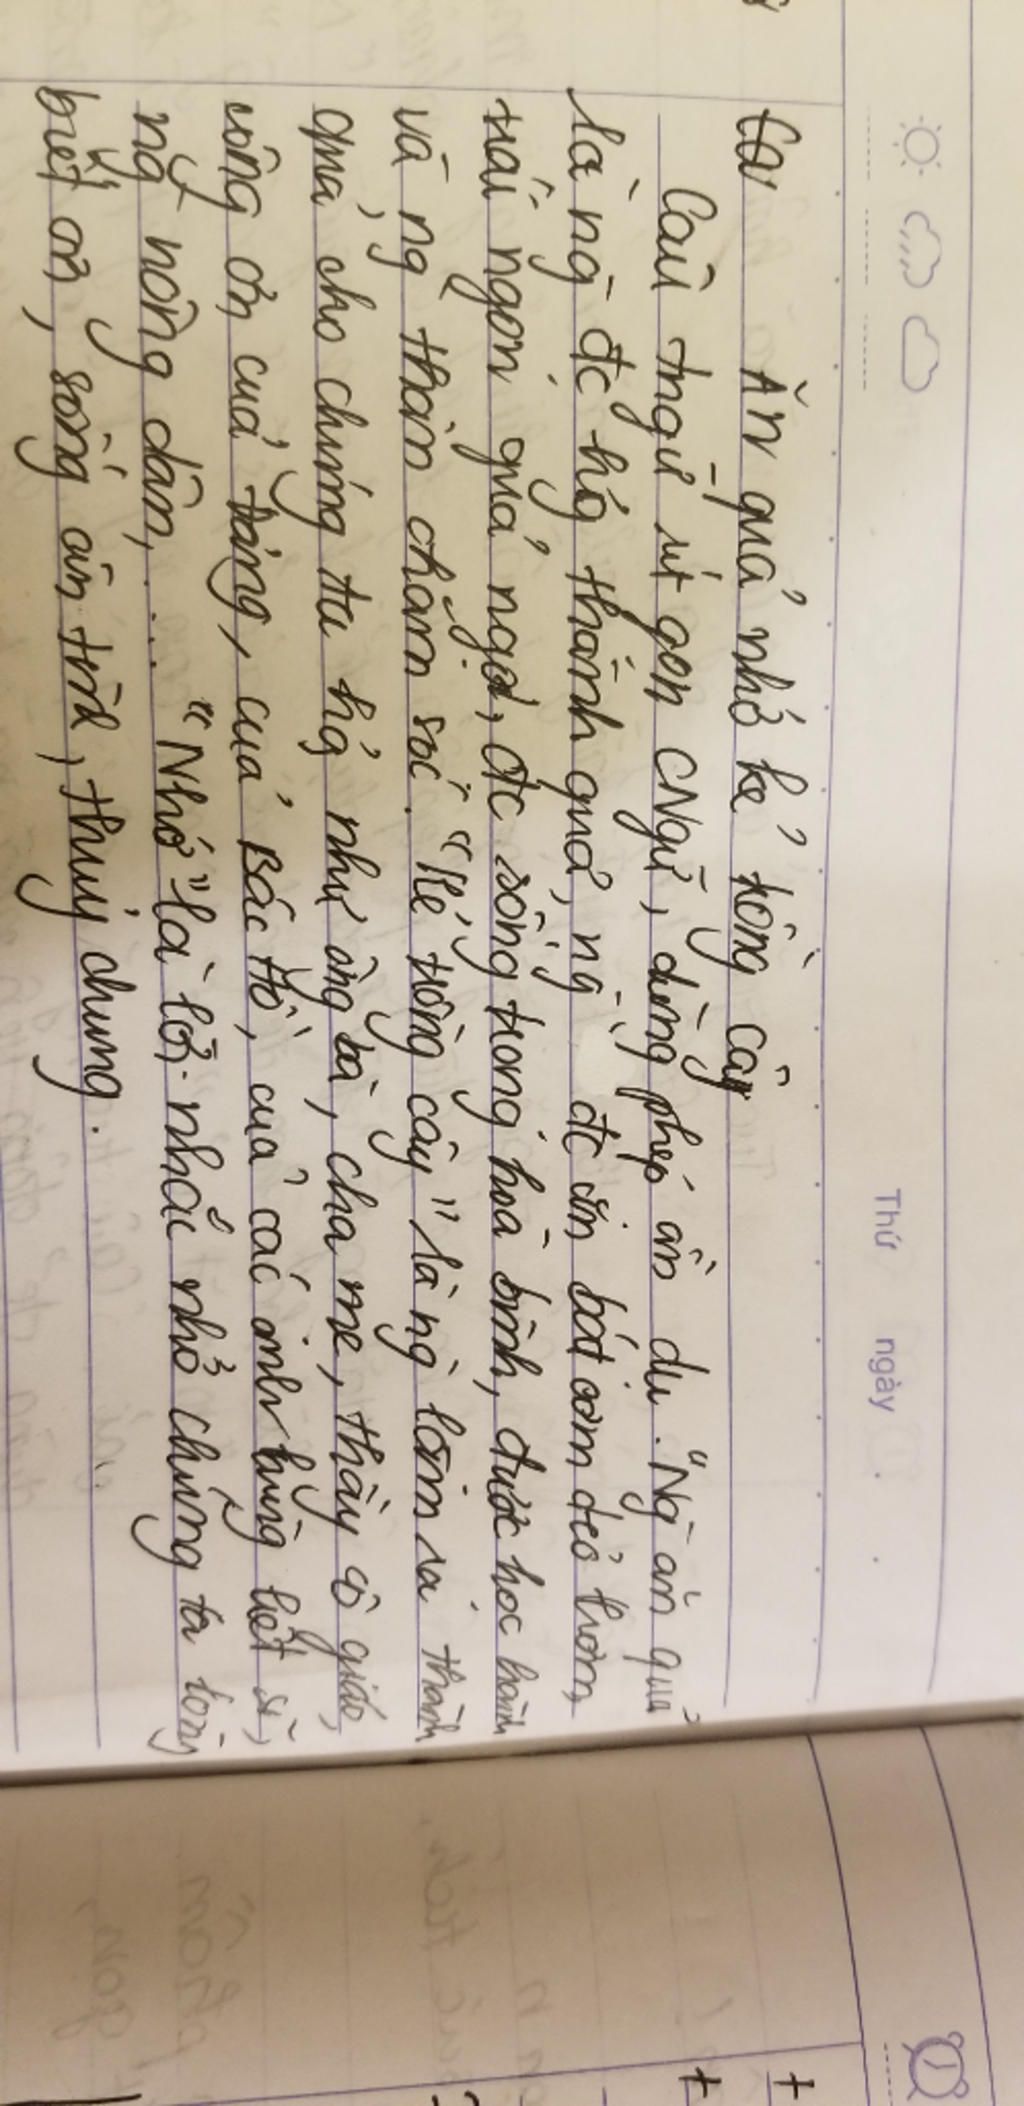 Thứ ngày
Ăn quả nhớ kẻ trồng cây
Câu tngữ rút gọn CNgữ, dùng phép ẩn dụ. "Ng ăn quả"
là ng đc hg thành quả, ng đc ăn bát cơm dẻo thơm,
trái ngon quả ngọt, đc sống trong hoà bình, được học hành
và ng thân chăm sóc. "Kẻ trồng cây" là ng làm ra thành
quả cho chúng ta hg như ông bà, cha mẹ, thầy cô giáo,
công ơn của Đảng, của Bác Hồ, của các anh hùng liệt sĩ,
ng nông dân,... "Nhớ" là lời nhắc nhở chúng ta lòng
biết ơn, sống ân tình, thuỷ chung.
+
+